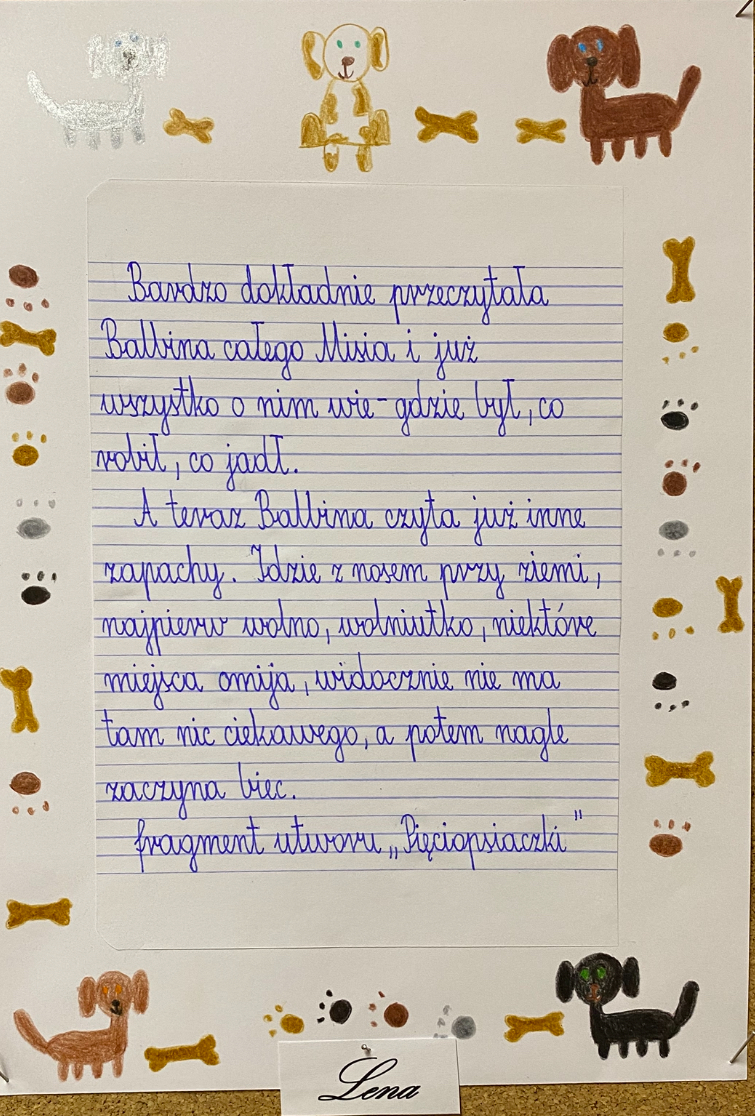 Bardzo dokładnie przeczytała
Balbina całego Misia i już
wszystko o nim wie - gdzie był, co
robił, co jadł.
A teraz Balbina czyta już inne
zapachy. Idzie z nosem przy ziemi,
najpierw wolno, wolniutko, niektóre
miejsca omija, widocznie nie ma
tam nic ciekawego, a potem nagle
zaczyna biec.
fragment utworu „Pięciopsiaczki"
Lena